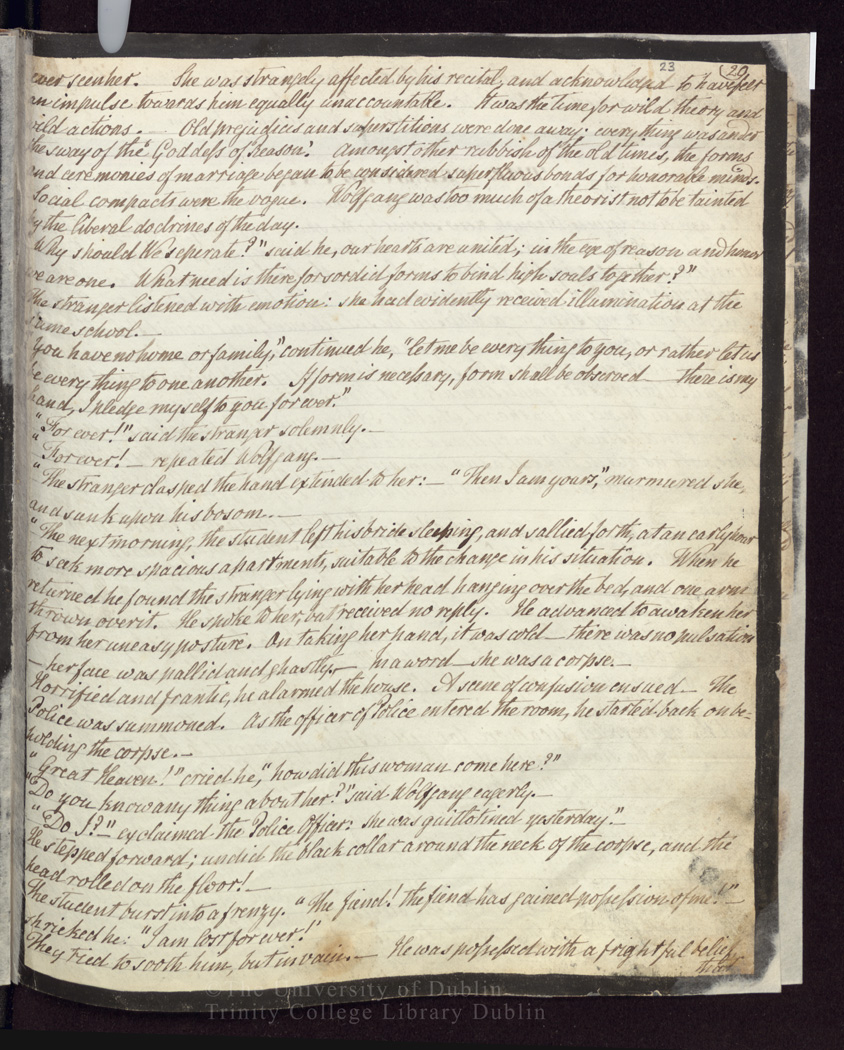 23 (20)
ever seen her. She was strangely affected by his recital, and acknowledged to have felt
an impulse towards him equally unaccountable. It was the time for wild theory and
wild actions. — Old prejudices and superstitions were done away: every thing was under
the sway of the "Goddess of Reason". Amongst other rubbish of the old times, the forms
and ceremonies of marriage began to be considered superfluous bonds for honorable minds.
Social compacts were the vogue. Wolfgang was too much of a theorist not to be tainted
by the liberal doctrines of the day.
"Why should We seperate?" said he, our hearts are united; in the eye of reason and honor
we are one. What need is there for sordid forms to bind high souls together?"
The stranger listened with emotion: she had evidently received illumination at the
same school. —
"You have no home or family," continued he, "let me be every thing to you, or rather let us
be every thing to one another. If form is necessary, form shall be observed — there is my
hand, I pledge myself to you for ever."
"For ever!" said the stranger solemnly. —
"For ever! — repeated Wolfgang. —
"The stranger clasped the hand extended to her: — "Then I am yours," murmured she,
and sunk upon his bosom. —
"The next morning, the student left his bride sleeping, and sallied forth, at an early hour
to seek more spacious apartments, suitable to the change in his situation. When he
returned he found the stranger lying with her head hanging over the bed, and one arm
thrown over it. He spoke to her, but received no reply. He advanced to awaken her
from her uneasy posture. On taking her hand, it was cold — there was no pulsation
— her face was pallid and ghastly. — In a word — she was a corpse. —
Horrified and frantic, he alarmed the house. A scene of confusion ensued — The
Police was summoned. As the officer of Police entered the room, he started back on be-
holding the corpse. —
"Great Heaven!" cried he, "how did this woman come here?"
"Do you know any thing about her?" said Wolfgang eagerly. —
"Do I?" — exclaimed the Police Officer: she was guillotined yesterday." —
He stepped forward; undid the black collar around the neck of the corpse, and the
head rolled on the floor! —
The student burst into a frenzy. "The fiend! the fiend has gained possession of me!" —
shrieked he: "I am lost for ever!"
They tried to sooth him, but in vain. — He was possessed with a frightful belief
©The University of Dublin
Trinity College Library Dublin